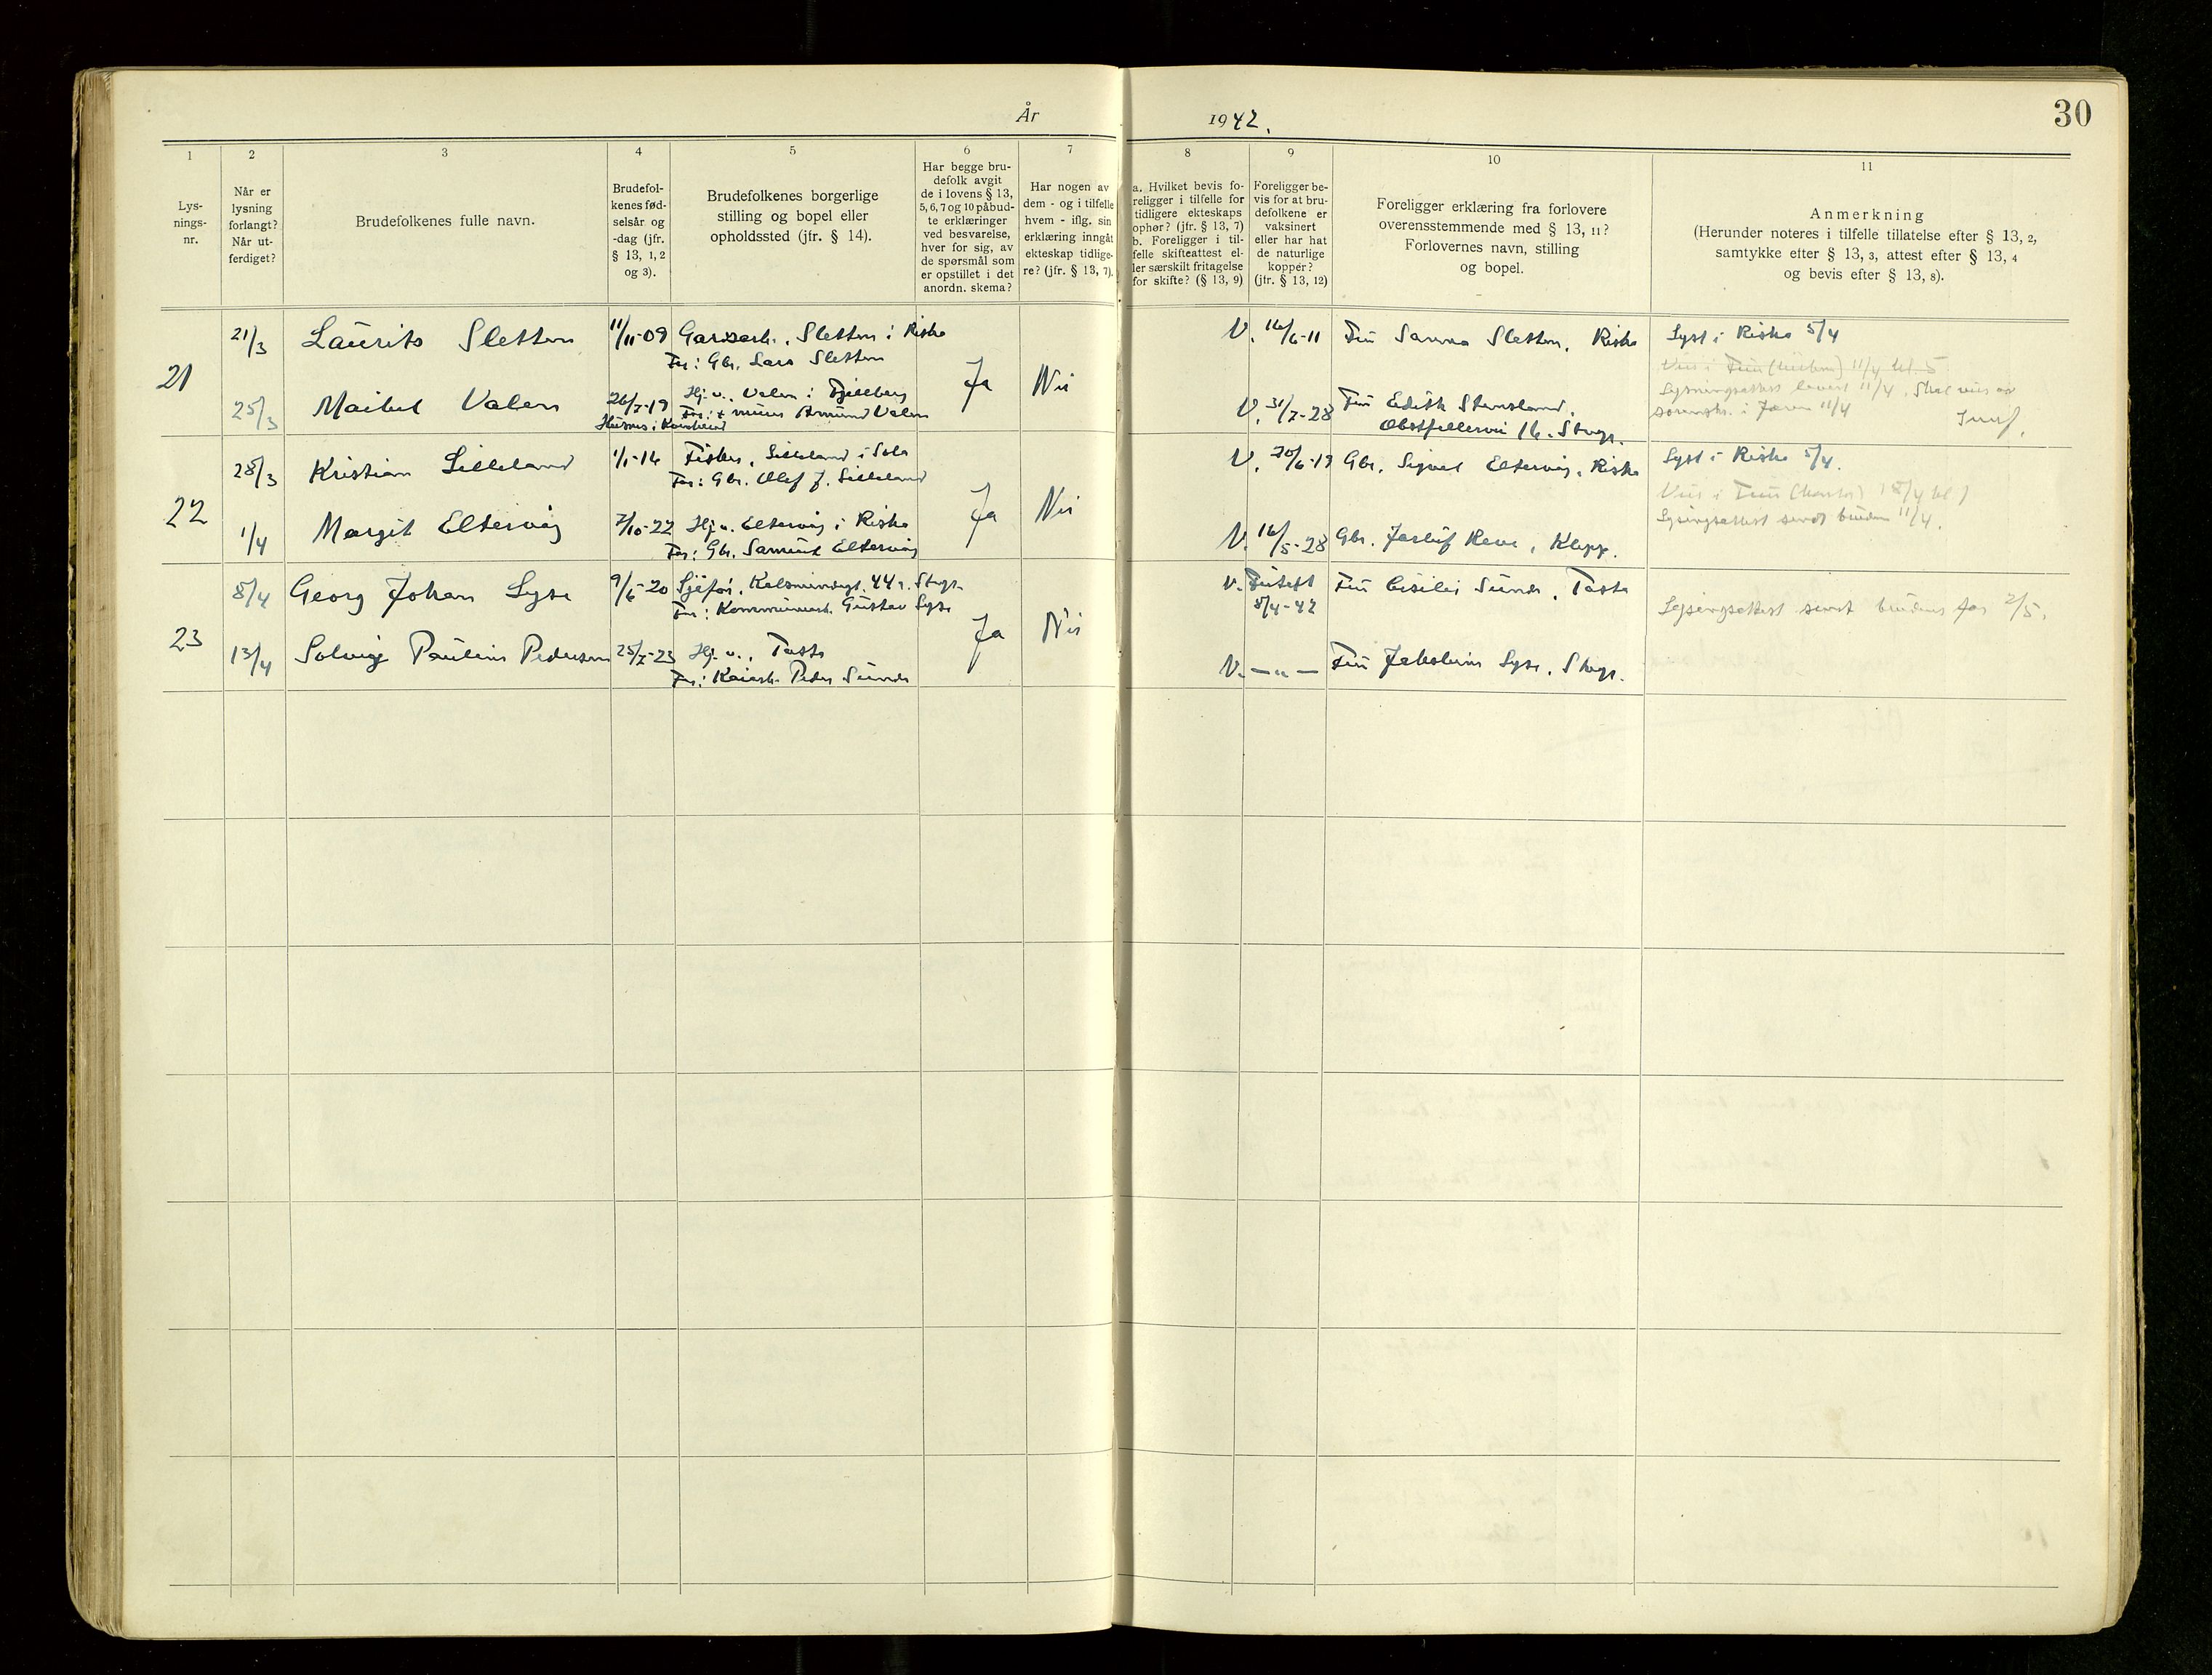 30
År 1942.
1 2 3 4 5 6 7 8 9 10 11
Lys-
nings-
nr.
Når er
lysning
forlangt?
Når ut-
ferdiget?
Brudefolkenes fulle navn.
Brudefol-
kenes fød-
selsår og
-dag (jfr.
§ 13, 1, 2
og 3).
Brudefolkenes borgerlige
stilling og bopel eller
opholdssted (jfr. § 14).
Har begge bru-
defolk avgit
de i lovens § 13,
5, 6, 7 og 10 påbud-
te erklæringer
ved besvarelse,
hver for sig, av
de spørsmål som
er opstillet i det
anordn. skema?
Har nogen av
dem - og i tilfelle
hvem - iflg. sin
erklæring inngåt
ekteskap tidlige-
re? (jfr. § 13, 7).
a. Hvilket bevis fo-
religger i tilfelle for
tidligere ekteskaps
ophør? (jfr. § 13, 7)
b. Foreligger i til-
felle skifteattest el-
ler særskilt fritagelse
for skifte? (§ 13, 9)
Foreligger be-
vis for at bru-
defolkene er
vaksinert
eller har hat
de naturlige
kopper?
(jfr. § 13, 12)
Foreligger erklæring fra forlovere
overensstemmende med § 13, 11?
Forlovernes navn, stilling
og bopel.
Anmerkning
(Herunder noteres i tilfelle tillatelse efter § 13, 2,
samtykke efter § 13, 3, attest efter § 13, 4
og bevis efter § 13, 8).
21
21/3 Laurits Sletten 11/11-09 Gardsarb., Sletten i Riska
Far: Gbr. Lars Sletten
25/3 Maibel Valen 26/7-19 Hj. v., Valen i Fjelberg
Far: + murer Amund Valen
Ja Nei
V. 16/6-11 Fru Sanna Sletten, Riska
V. 31/7-28 Fru Edith Stensland,
16, Stvgr.
Lyst i Riska 5/4
Vies i Fru 11/4 kl. 5
Lysningsattest levert 11/4. Skal vies av
sorenskr. i Jæren 11/4
22
28/3 Kristian Lilleland 1/1-16 Fisker, Lilleland i Sola
Far: Gbr. Olaf J. Lilleland
1/4 Margit Eltervåg 7/10-22 Hj. v. Eltervåg i Riska
Far: Gbr. Samuel Eltervåg
Ja Nei
V. 30/6-19 Gbr. Sigval Eltervåg, Riska
V. 16/5-28 Gbr. Jarleif Reve, Klepp.
Lyst i Riska 5/4.
Vies i Fru 18/4 kl
Lysingsattest sendt bruden 11/4.
23
8/4 Georg Johan Lyse 9/6-20 Sjåfør, 44 Stvgr.
Far: Kommunearb. Gustav Lyse
13/4 Solveig Pauline Pedersen 25/7-23 Hj. v., Tasta
Far: Kaiarb. Peder Sunde
Ja Nei
V. Fritatt
8/4-42
Fru Cicilie Sunde, Tasta
V. — " — Fru Jakobine Lyse, Stvgr.
Lysingsattest sendt brudens far 2/5.